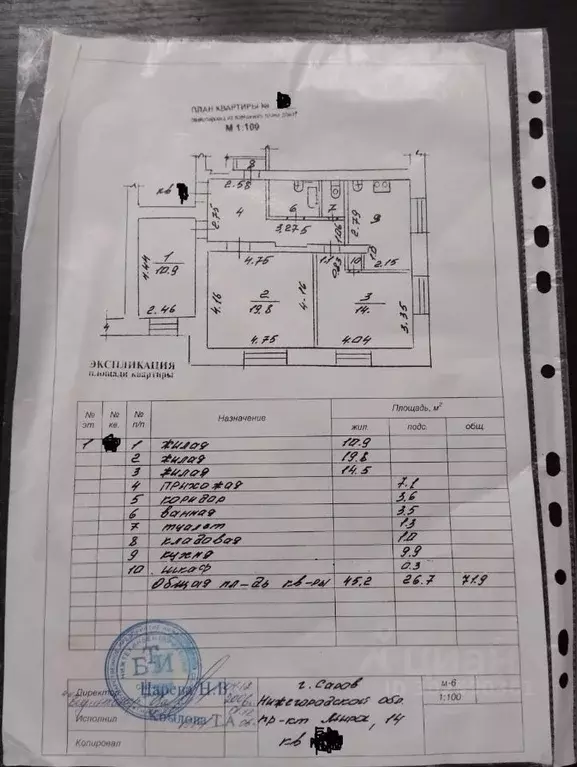 ПЛАН КВАРТИРЫ №
М 1:100
кв
2.58
2.75
4
6
7
3.275
1.06
2.79
9
4.44
1
10.9
2.46
4.75
1.1
10
2.15
4.16
2
19.8
4.16
3
14.
3.35
4.75
4.04
ЭКСПЛИКАЦИЯ
площади квартиры
№ эт. № кв. № п/п Назначение Площадь, м²
жил. подс. общ.
1 1 жилая 10.9
2 жилая 19.8
3 жилая 14.5
4 прихожая 7.1
5 коридор 3.6
6 ванная 3.5
7 туалет 1.3
8 кладовая 1.0
9 кухня 9.9
10 шкаф 0.3
Общая пл-дь кв-ры 45.2 26.7 71.9
БТИ
Директор Царева Н.В.
Исполнил Кобылова Т.А.
Копировал
г. Саров
Нижегородской обл.
пр-кт Мира, 14
кв
м-б
1:100